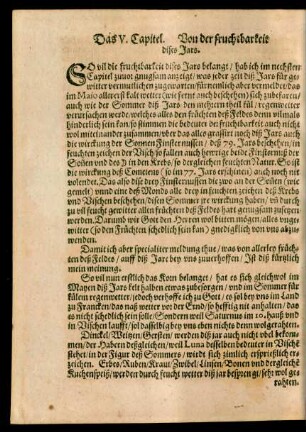 Das V. Capitel. Von der fruchtbarkeit
dises Jars.
SO vil die fruchtbarkeit dises Jars belangt / hab ich im nechsten
Capitel zuuor gnugsam anzeigt / was jeder zeit diß Jars für ge-
witter vermuetlichen zugewarten / fürnemlich aber vermeldet / das
im Maio allererst kalt wetter (wie fernt auch beschehen) sich zubefarn /
auch wie der Sommer diß Jars / den mehrern theil kül / regenwetter
verursachen werde / welches alles den früchten deß Feldes denn vilmals
hinderlich sein kan / so stimmen die bedeuter der fruchtbarkeit auch nicht
wol miteinander zusammen / vber das alles grassirt noch diß Jars auch
die wirckung der Sonnen Finsternussen / deß 79. Jars beschehen / in
feuchten zeichen der Visch so fallen auch heweige beide Finsternuß der
Sonnen vnd des in den Krebs / so dergleichen feuchter Natur. So ist
die wirckung deß Cometens (so im 77. Jars erschinen) auch noch nit
volendet. Das also dise drey Finsternussen die zwo an der Sonnen (wie
gemelt) vnnd eine deß Monds alle drey in feuchten zeichen deß Krebs
vnd Vischen beschehen / disen Sommer jre wirckung haben / vñ durch
zu vil feucht gewitter allen früchten deß Feldes hart genugsam zusetzen
werden. Darumb wir Gott den Herren wol bitten mögen / alles vnge-
witter (so den Früchten schedlich sein kan) gnedigklich von vns abzu-
wenden.
Damit ich aber specialiter meldung thue / was von allerley früch-
ten deß Feldes / auff diß Jar bey vns zuuerhoffen / Ist diß kürtzlich
mein meinung.
So vil nun erstlich das Korn belanget / hat es sich gleichwol im
Mayen diß Jars kelt halben etwas zubesorgen / vnd im Sommer für
külem regenwetter / jedoch verhoffe ich zu Gott / es sol bey vns im Land
zu Francken / das naß wetter vor der Ernd / so hefftig nit anhalten / das
es nicht schedlich sein solle / Sondern weil Saturnus im 10. hauß vnd
in Vischen laufft / sol dasselbig bey vns eben nichts denn wol gerathen.
Dinckel / Weitzen / Gersten / werden zu jar auch nicht vbel bekom-
men / der Habern deßgleichen / weil Luna desselben bedeuter in Vische
stehet / in der Figur deß Sommers / wirdt sich zimlich ersprießlich er-
zeigen. Erbes / Ruben / Kraut / Zwibel / Linsen / Bonen vnd dergleichē
Kuchenspeiß / werden durch feucht wetter diß jar besprenge / sehr wol ge-
rahten